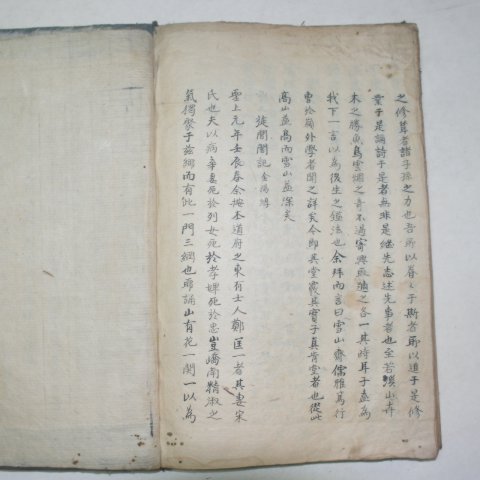 之修葺者諸子孫之力也吾所以眷〻于斯者聊以道于是修
業于是誦詩于是者無非是繼先志述先事者也至若溪山卉
木之勝魚鳥雲烟之奇不過寄興取適之各一其時耳子盍為
我下一言以為後生之鑑法也余拜而言曰雪山齋儒雅篤行
曹於嶺外學者聞之詳矣今即其堂襲其寶子真肯堂者也從此
高山益高而雪山益深矣
旌閭閣記
聖上元年壬辰春余按本道府之東有士人鄭匡一者其妻宋
氏也夫以病妻死於列女死於孝婢死於忠豈嶠南精淑之
氣獨聚于玆細而有此一門三綱也耶誦山有花一闋一以為